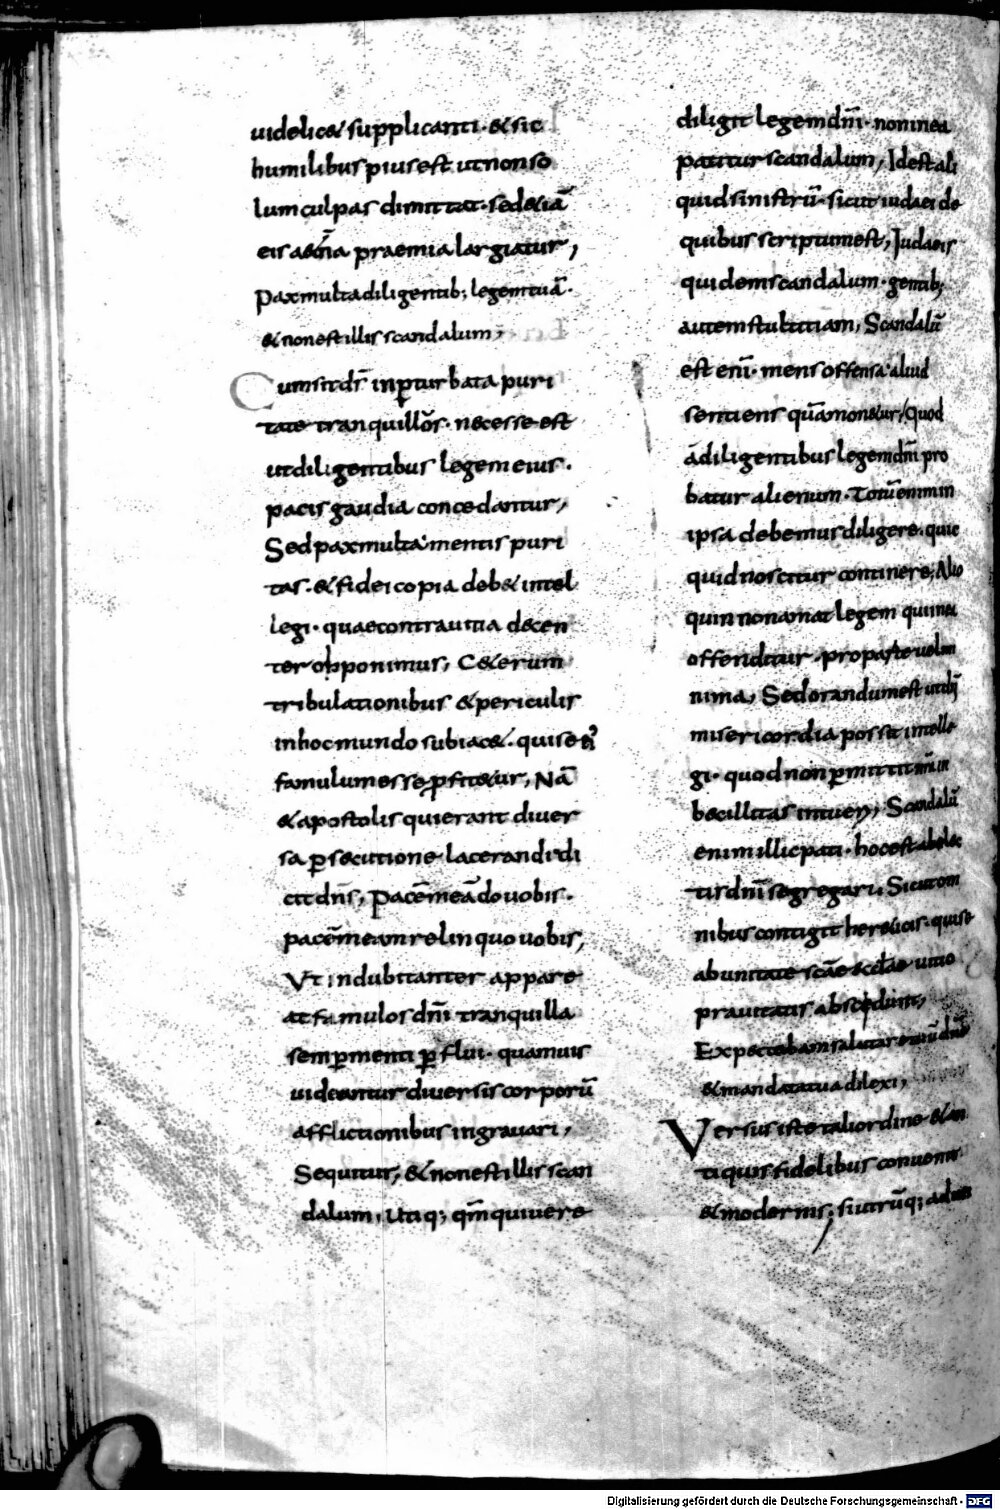 uidelic& supplicanti· & sic
humilibus pius est ut non so
lum culpas dimittat· sed &iā
eis aet̄na praemia largiatur,
Pax multa diligentib; legem tuā·
& non est illis scandalum,
Cum sit dn̄s inp̱turbata puri
tate tranquillus· necesse est
ut diligentibus legem eius·
pacis gaudia concedantur,
Sed pax multa· mentis puri
tas· & fidei copia deb& intel
legi· quae contra uitia decen
ter opponimus, C&erum
tribulationibus & periculis
in hoc mundo subiac&· qui se
famulum esse profit&ur, Nā
& apostolis qui erant diuer
sa p̱secutione lacerandi di
cit dn̄s, Pacē meā do uobis·
pacē meam relinquo uobis,
Ut indubitanter appare
at famulos dn̄i tranquilla
semp̱ menti p̱flui· quamuis
uideantur diuersis corporū
afflictionibus ingrauari,
Sequitur, & non est illis scan
dalum, Utiq; qm̄ qui uere
diligit legem dn̄i· non in ea
patitur scandalum, Id est ali
quid sinistrū· sicut iudaei de
quibus scriptum est, Iudaeis
quidem scandalum· gentib;
autem stultitiam, Scandalū
est eni̅· mens offensa· aliud
sentiens quā mon&ur, quod
a diligentibus legem dn̄i pro
batur alienum· Totū enim in
ipsa debemus diligere· quic
quid noscitur continere, Alio
quin non amat legem qui in ea
offenditur· pro parte uel mi
nima, Sed orandum est
misericordia possit intelle
gi· quod non p̱mittit im
becillitas intueri, Scandalū
enim illic pati· hoc est ab elec
tis dn̄i segregari, Sicut om
nibus contigit her&icis· qui se
ab unitate scāe eccl̄ae uitio
prauitatis abscidunt,
Expectabam salutare tuū dn̄e
& mandata tua dilexi,
Versus iste tali ordine & an
tiquis fidelibus conuenit
& modernis, si utrūq;